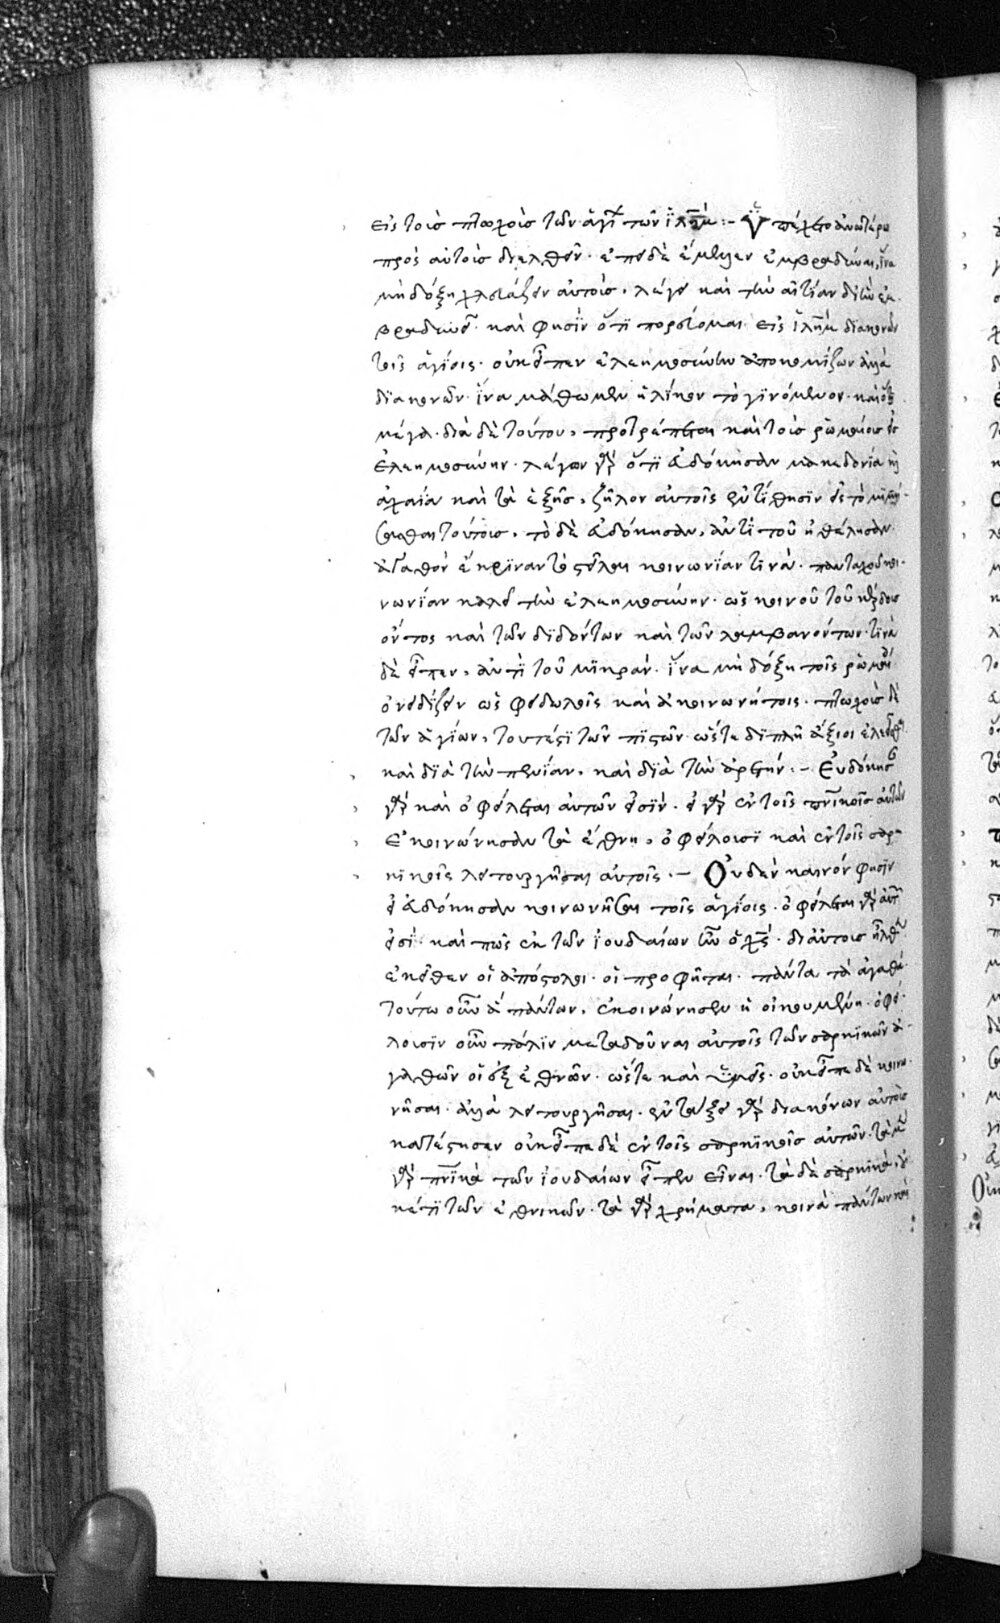 εἰς τοὺς πτωχοὺς τῶν ἁγί τῶν ἰλημ :– Ὑπέσχετο ἀνωτέρω
πρὸς αὐτοὺς διελθεῖν· ἐπεὶ δὲ ἔμελλεν ἐμβραδύναι, ἵνα
μὴ δόξη χλευάζειν αὐτούς, λέγει καὶ τὴν αἰτίαν δι' ἣν ἐμ
βραδύνει· καὶ φησὶν ὅτι πορεύομαι εἰς ἰλημ διακονῶν
τοῖς ἁγίοις· οὐκ εἶπεν ἐλεημοσύνην ἀποκομίζων ἀλλὰ
διακονῶν· ἵνα μάθωμεν ἡλίκον τὸ γινόμενον· καὶ ὅτι
μέγα· διὰ δὲ τούτου, προτρέπεται καὶ τοὺς ῥωμαίους εἰς
ἐλεημοσύνην· λέγων γὰρ ὅτι εὐδόκησαν μακεδονία καὶ
ἀχαΐα καὶ τὰ ἑξῆς, ζῆλον αὐτοῖς ἐντίθησιν εἰς τὸ μιμή
σασθαι τούτους, τὸ δὲ εὐδόκησαν, ἀντὶ τοῦ ἠθέλησαν
ἀγαθὸν ἔκριναν τὸ στεῖλαι κοινωνίαν τινά· πανταχοῦ κοι
νωνίαν καλεῖ τὴν ἐλεημοσύνην· ὡς κοινοῦ τοῦ κέρδους
ὄντος καὶ τῶν διδόντων καὶ τῶν λαμβανόντων· τινὰ
δὲ εἶπεν, ἀντὶ τοῦ μικράν· ἵνα μὴ δόξη τοῖς ῥωμαί
ὀνειδίζειν ὡς φειδωλοῖς καὶ ἀκοινωνήτοις· πτωχοὺς δὲ
τῶν ἁγίων, τουτέστι τῶν πιστῶν· ὥστε διπλῆ ἄξιοι ἐλεεῖσθαι
καὶ διὰ τὴν πενίαν, καὶ διὰ τὴν ἀρετήν :– Εὐδόκησαν
γὰρ καὶ ὀφειλέται αὐτῶν εἰσίν· εἰ γὰρ ἐν τοῖς πνικοῖς αὐτῶν
ἐκοινώνησαν τὰ ἔθνη, ὀφείλουσι καὶ ἐν τοῖς σαρ
κικοῖς λειτουργῆσαι αὐτοῖς :– Οὐδὲν καινόν φησιν
εἰ εὐδόκησαν κοινωνῆσαι τοῖς ἁγίοις· ὀφειλέται γὰρ αὐτ
εἰσί· καὶ πῶς ἐκ τῶν ἰουδαίων ἦν ὁ χς· δι' αὐτοὺς ἦλθεν
ἐκεῖθεν οἱ ἀπόστολοι· οἱ προφῆται· πάντα τὰ ἀγαθά·
τούτων οὖν ἁπάντων, ἐκοινώνησεν ἡ οἰκουμένη· ὀφεί
λουσιν οὖν πάλιν μεταδοῦναι αὐτοῖς τῶν σαρκικῶν ἀ
γαθῶν οἱ ἐξ ἐθνῶν· ὥστε καὶ ὑμεῖς· οὐκ εἶπε δὲ κοινω
νῆσαι· ἀλλὰ λειτουργῆσαι· ἐν τάξει γὰρ διακόνων αὐτοὺς
κατέστησεν οὐκ εἶπε δὲ ἐν τοῖς σαρκικοῖς αὐτῶν· τὰ μὲν
γὰρ πνικὰ τῶν ἰουδαίων εἶπεν εἶναι· τὰ δὲ σαρκικὰ οὐ
κέτι τῶν ἐθνικῶν· τὰ γὰρ χρήματα, κοινὰ πάντων καὶ